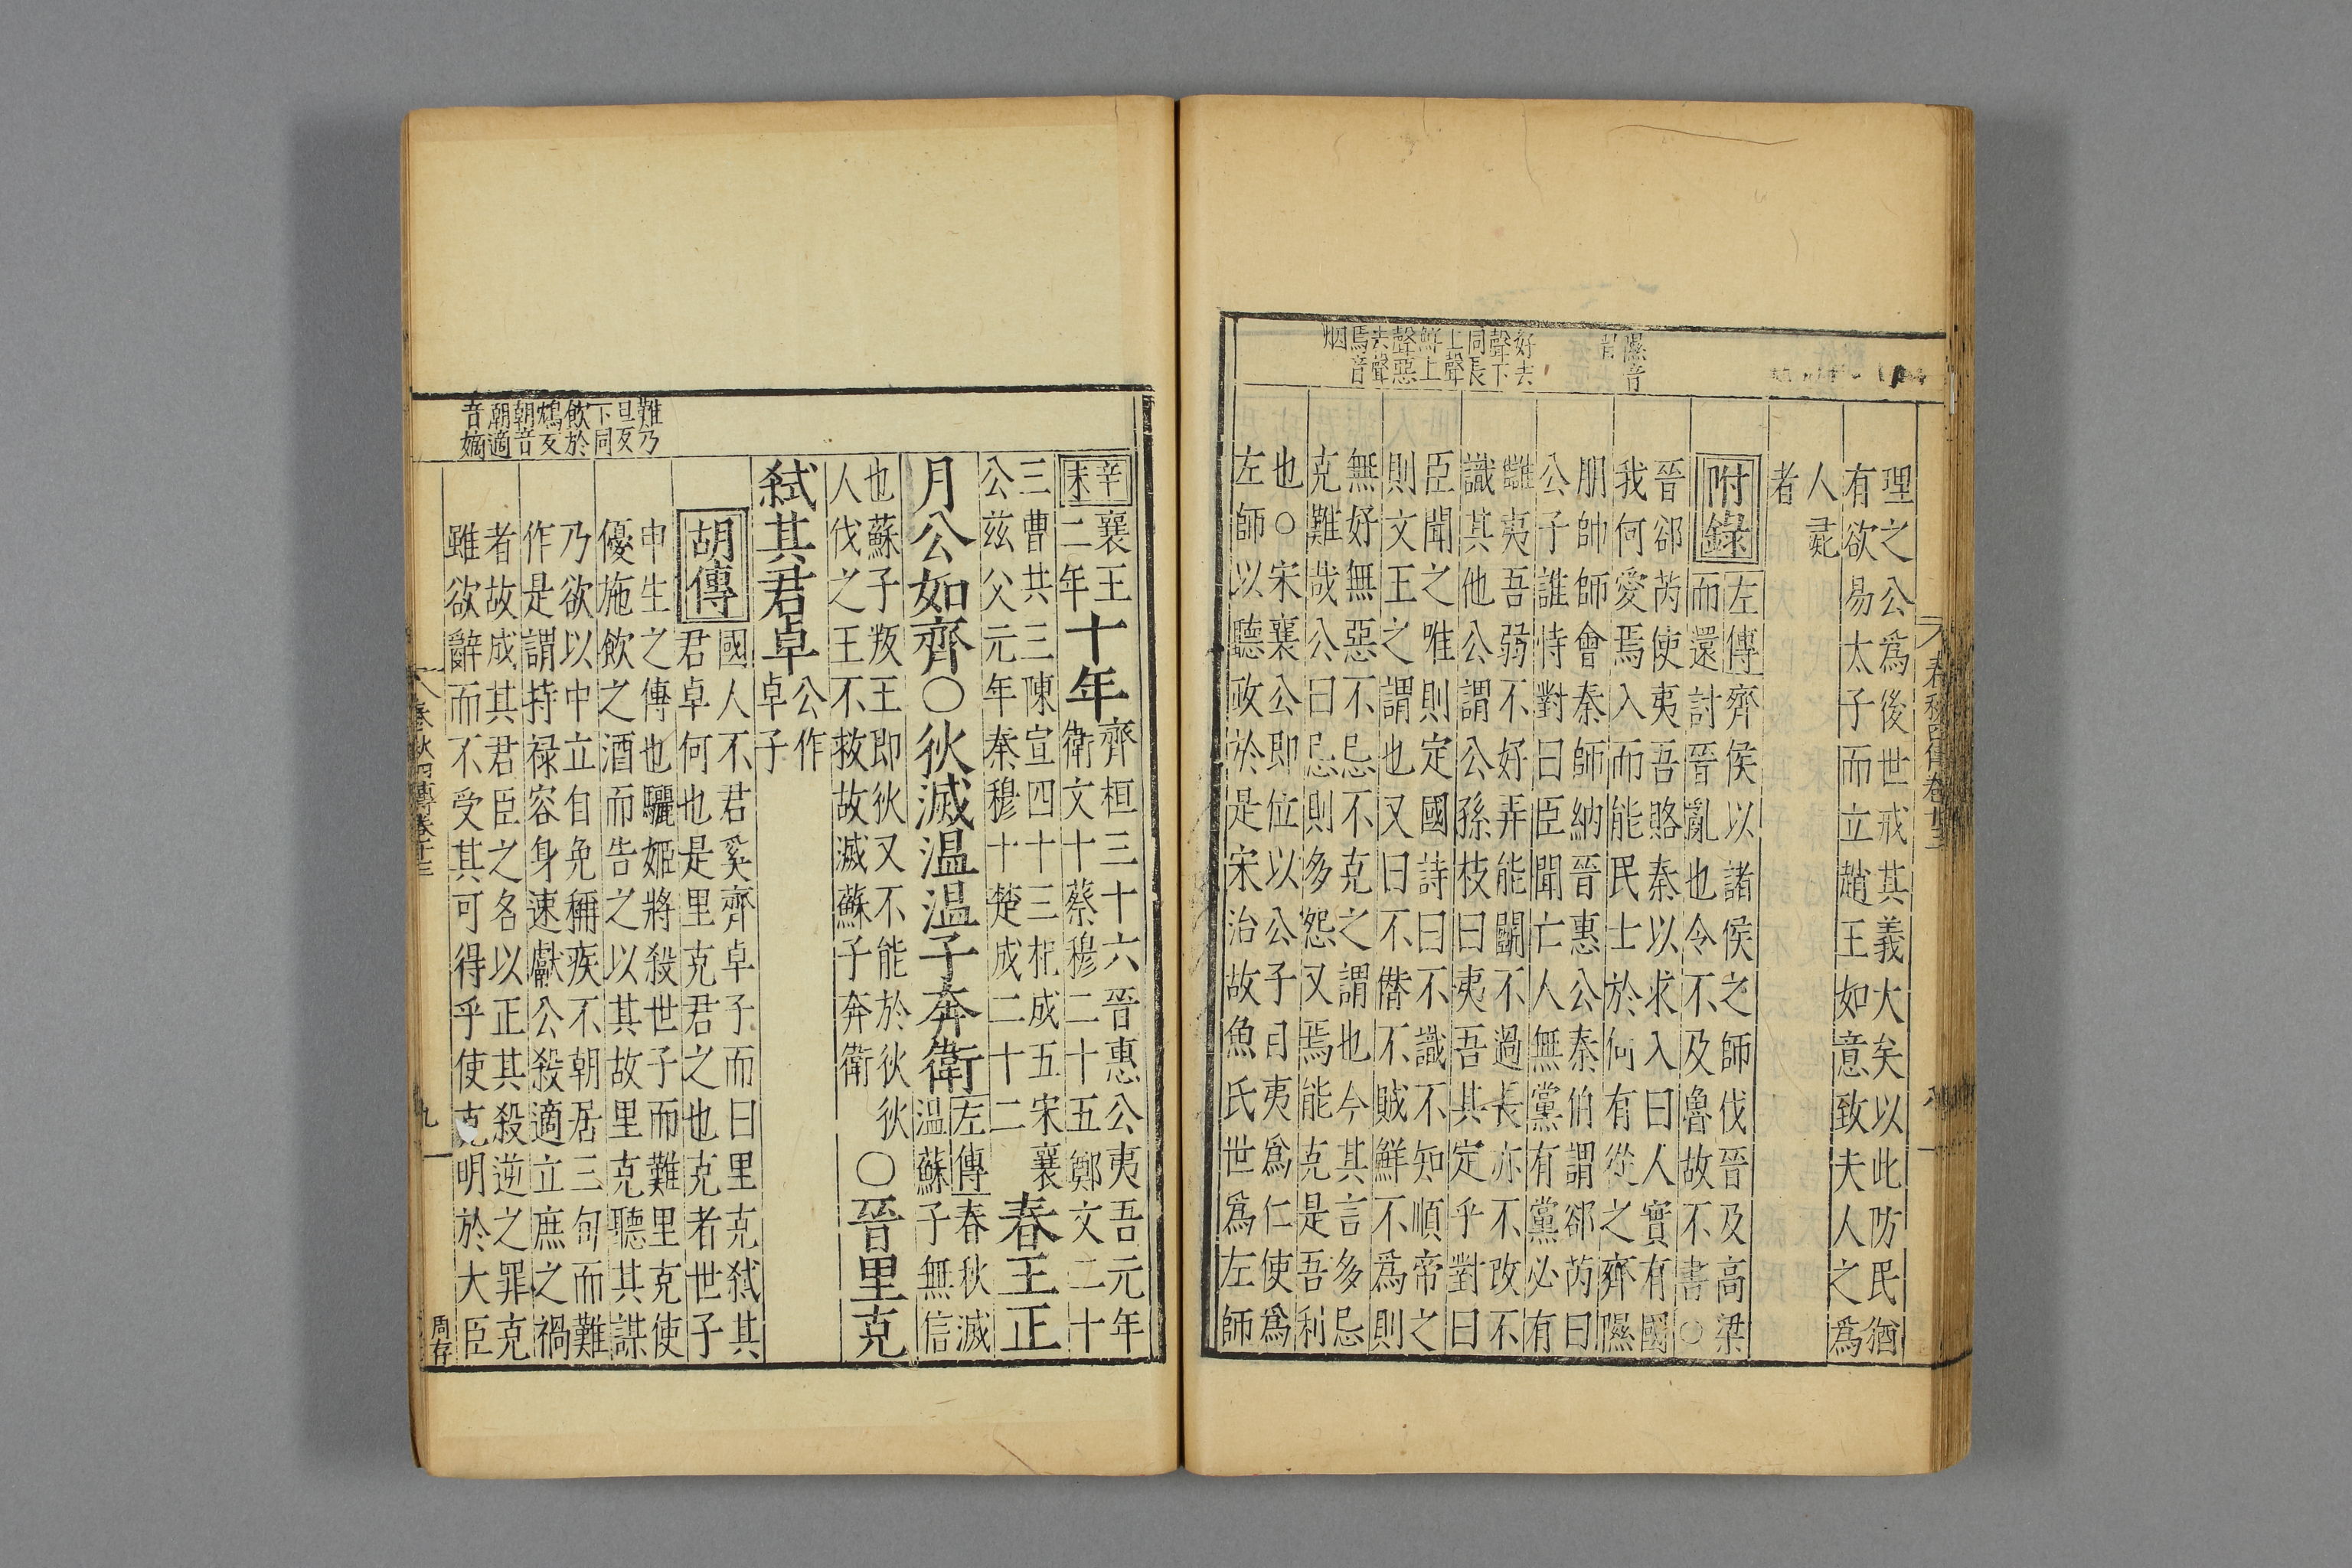 理之公爲後世戒其義大矣以此防民猶
有欲易太子而立趙王如意致夫人之爲
人彘
者
附錄
左傳齊侯以諸侯之師伐晉及高梁
而還討晉亂也令不及魯故不書○
晉郤芮使夷吾賂秦以求入曰人實有國
我何愛焉入而能民士於何有從之齊隰
朋帥師會秦師納晉惠公秦伯謂郤芮曰
公子誰恃對曰臣聞亡人無黨有黨必有
讎夷吾弱不好弄能鬬不過長亦不改不
識其他公謂公孫枝曰夷吾其定乎對曰
臣聞之唯則定國詩曰不識不知順帝之
則文王之謂也又曰不僭不賊鮮不爲則
無好無惡不忌不克之謂也今其言多忌
克難哉公曰忌則多怨又焉能克是吾利
也○宋襄公即位以公子目夷爲仁使爲
左師以聽政於是宋治故魚氏世爲左師
隰音
習
好去
聲下
同長
上聲
鮮上
聲惡
去聲
焉音
烟
春秋四傳卷十三
八
辛未
襄王
二年
十年
齊桓三十六晉惠公夷吾元年
衛文十五蔡穆二十五鄭文二十
三曹共三陳宣四十三杞成五宋襄
公兹父元年秦穆十楚成二十二
春王正
月公如齊○狄滅溫溫子奔衛
左傳春秋滅
溫蘇子無信
也蘇子叛王即狄又不能於狄狄
人伐之王不救故滅蘇子奔衛
○晉里克
弑其君卓
公作
卓子
胡傳
國人不君奚齊卓子而曰里克弑其
君卓何也是里克君之也克者世子
申生之傳也驪姬將殺世子而難里克使
優施飲之酒而告之以其故里克聽其謀
乃欲以中立自免稱疾不朝居三旬而難
作是謂持祿容身速獻公殺適立庶之禍
者故成其君臣之名以正其殺逆之罪克
雖欲辭而不受其可得乎使克明於大臣
難乃
旦反
下同
飲於
鴆反
朝音
朝適
音嫡
春秋四傳卷十三
九
周存